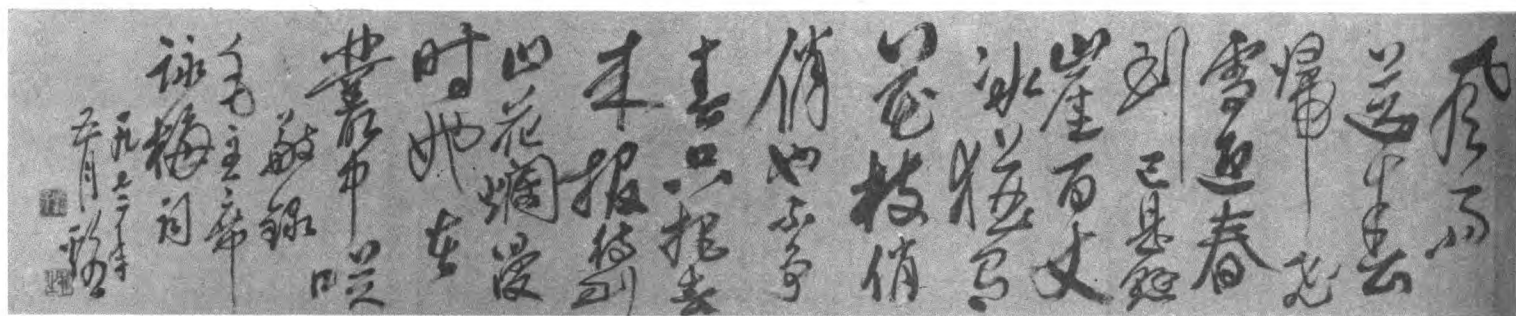 风雨
送春
歸飞
雪迎春
到已是懸
崖百丈
冰猶有
花枝俏
俏也不争
春只把春
来报待到
山花爛漫
时她在
叢中咲
敬録
毛主席
詠梅词
一九七二年
五月